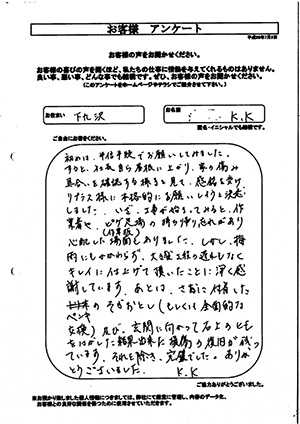 お客様 アンケート
平成26年7月3日
お客様の声をお聞かせください。
お客様の喜びの声を聞くほど、私たちの仕事に情熱を与えてくれるものはありません。
良い事、悪い事、どんな事でも結構です。ぜひ、お客様の声をお聞かせください。
(このアンケートをホームページやチラシでご紹介させて下さい。)
お住まい 下九沢
お名前 K.K
匿名・イニシャルでも結構です。
ご自由にお書きください。
初めは、半信半疑でお願いしてみました。
すると、社長自ら屋根に上がり、家の傷み
具合いを確認する様を見て、感銘を受け
リプラス様に本格的にお願いしようと決意
しました。いざ、工事が始まってみると、作
業者や、ビケ足場の
(作業板)
心配した場面もありました。しかし、梅
雨にもかかわらず、大きな工程の遅れもなく
キレイに仕上げて頂いたことに深く感
謝しています。あとは、さおに付着した
ペンキ
交換)及び、玄関に向かって右上の
をはがした結果出来た損傷の復旧が残っ
ています。それを除き、完璧でした。ありが
とうございました。 K.K
ご協力ありがとうございました。
※お預かり致しました個人情報につきましては、弊社にて厳重に管理し、内容のデータ化、
お客様との良好な関係を築くために使用させていただきます。